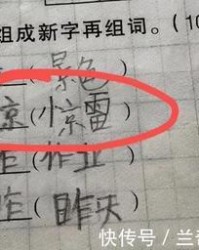 组成新字再组词。(10
(景色)
惊(惊雷)
作(作业)
昨(昨天)
快传号/兰